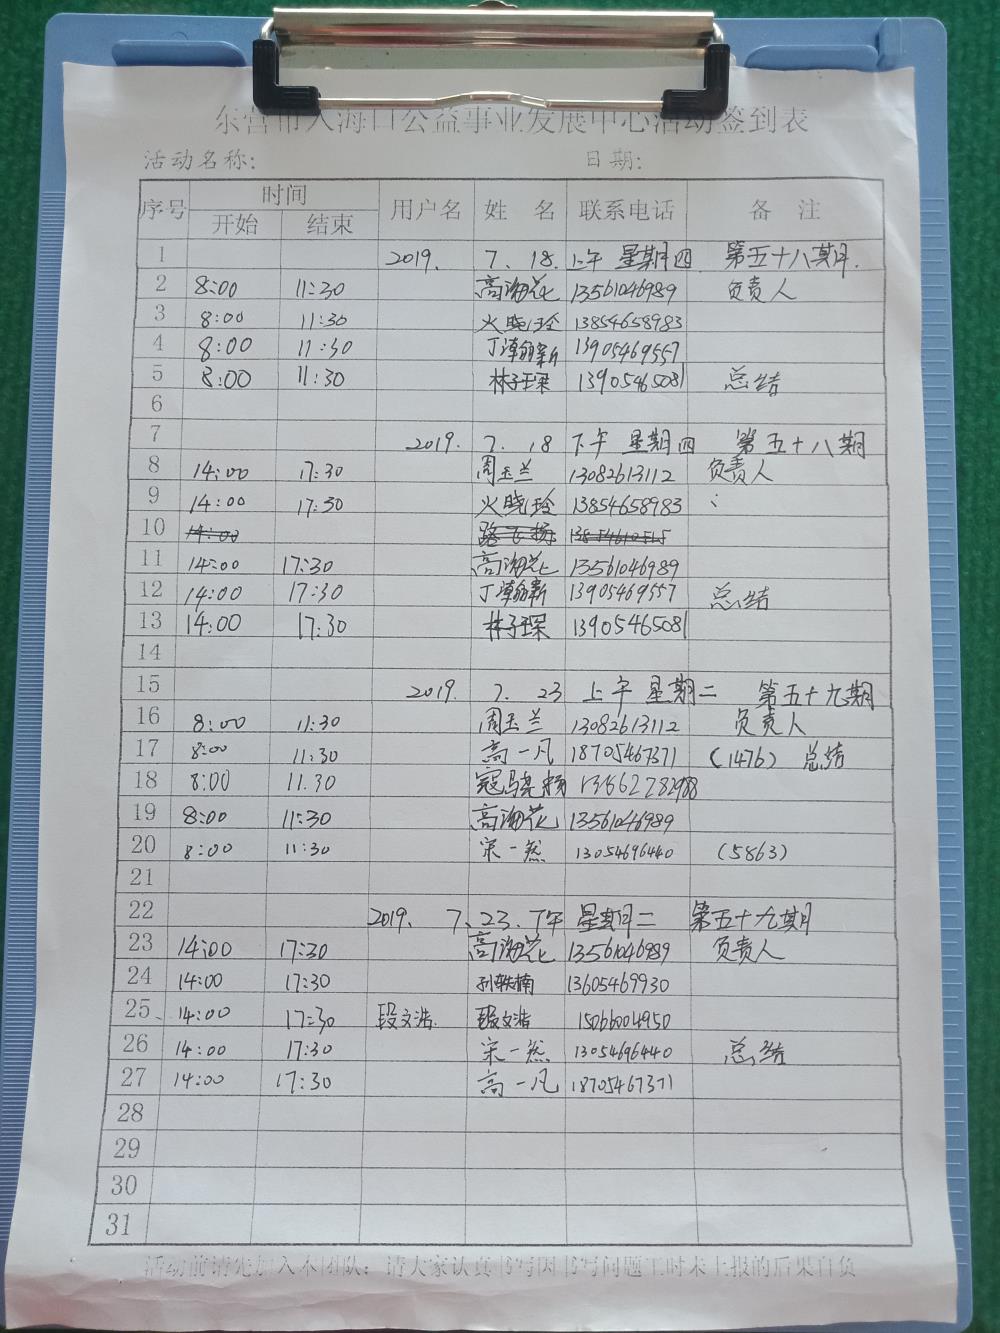 东营市入海口公益事业发展中心活动签到表
活动名称: 日期:
序号 时间 用户名 姓 名 联系电话 备 注
开始 结束
1 2019. 7. 18. 上午 星期四 第五十八期.
2 8:00 11:30 高海花 13561046989 负责人
3 8:00 11:30 火晓玲 13854658983
4 8:00 11:30 丁瀚新 13905469557
5 8:00 11:30 林子琛 13905465081 总结
6
7 2019. 7. 18 下午 星期四 第五十八期
8 14:00 17:30 周玉兰 13082613112 负责人
9 14:00 17:30 火晓玲 13854658983
10 14:00
11 14:00 17:30 高海花 13561046989
12 14:00 17:30 丁瀚新 13905469557 总结
13 14:00 17:30 林子琛 13905465081
14
15 2019. 7. 23 上午 星期二 第五十九期
16 8:00 11:30 周玉兰 13082613112 负责人
17 8:00 11:30 高一凡 18705467371 (1476) 总结
18 8:00 11.30
19 8:00 11:30 高海花 13561046989
20 8:00 11:30 宋一然 13054696440 (5863)
21
22 2019. 7.23. 下午 星期二 第五十九期
23 14:00 17:30 高海花 13561046989 负责人
24 14:00 17:30 孙轶楠 13605469930
25 14:00 17:30 段文浩. 段文浩 15066004950
26 14:00 17:30 宋一然 13054696440 总结
27 14:00 17:30 高一凡 18705467371
28
29
30
31
活动前请先加入本团队; 请大家认真书写因书写问题工时未上报的后果自负